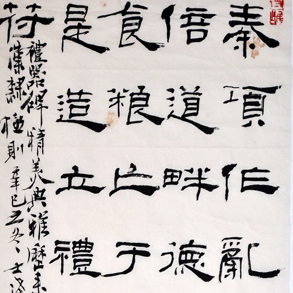 秦項作亂
倍道畔德
食粮亡于
是造立禮
苻
禮器碑精美典雅歷來
漢隸極則辛巳